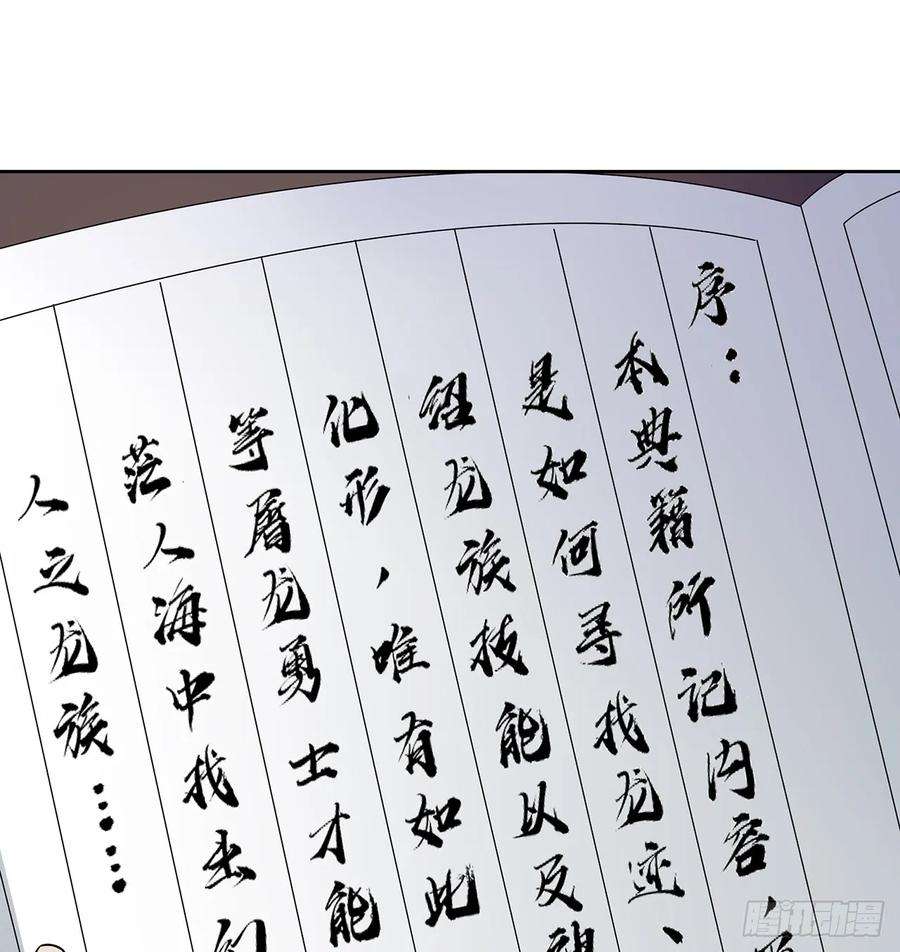 序：
本典籍所记内容，
是如何寻找龙迹、
纽龙族技能以及
化形，唯有如此
等屠龙勇士才能
茫人海中找出
人之龙族……
腾讯动漫